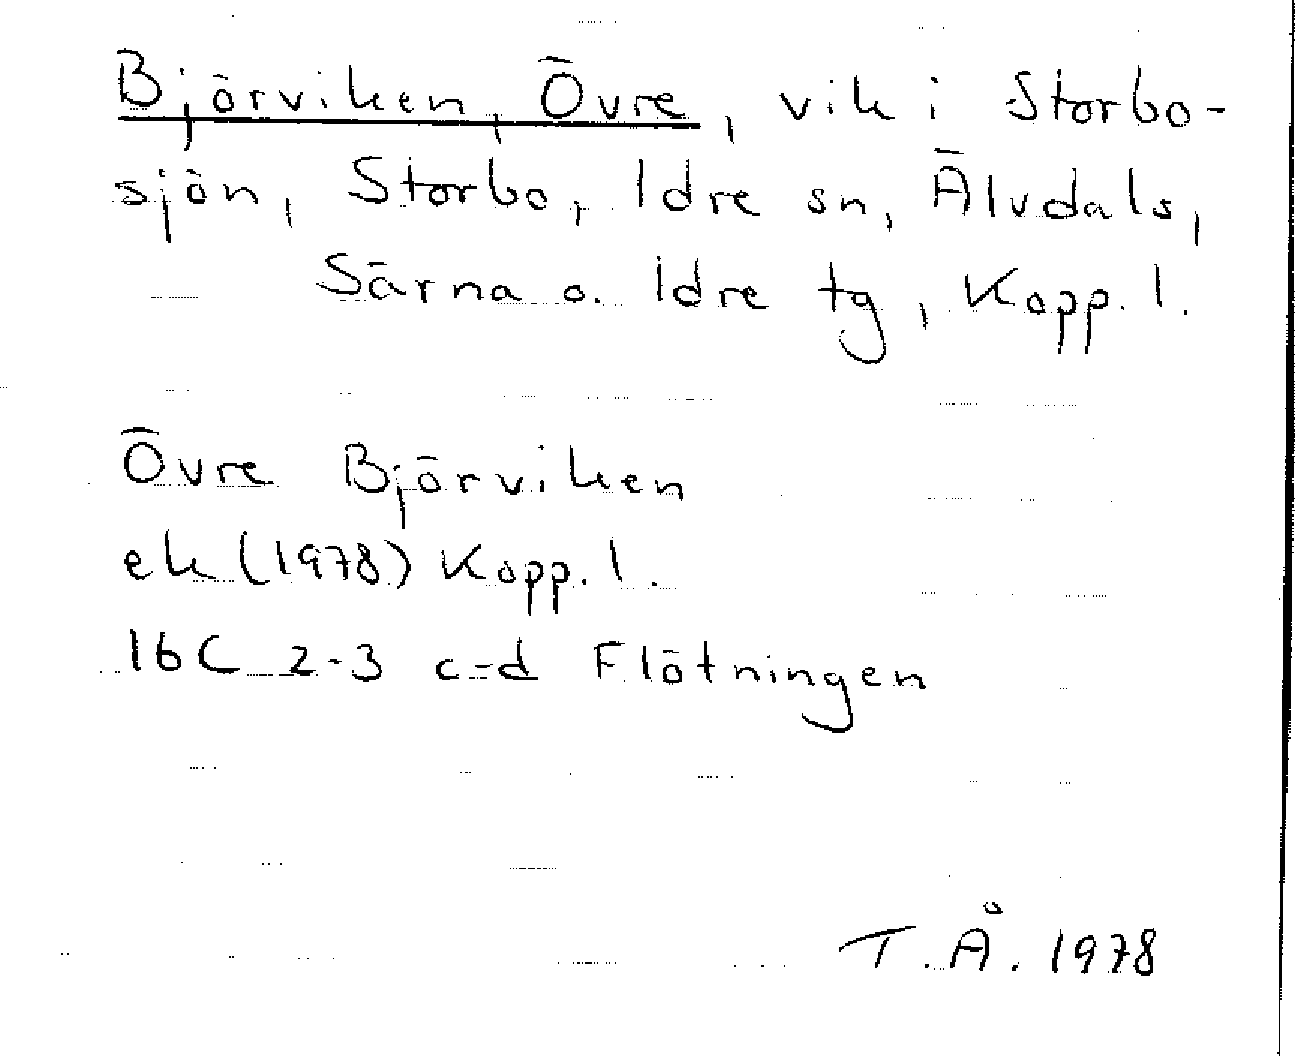 Björviken, Övre, vik i Storbo-
sjön, Storbo, Idre sn, Älvdals,
Särna o. Idre tg, Kopp. l.
Övre Björviken
ek (1978) Kopp. l.
16C 2-3 c-d Flötningen
T. Å. 1978